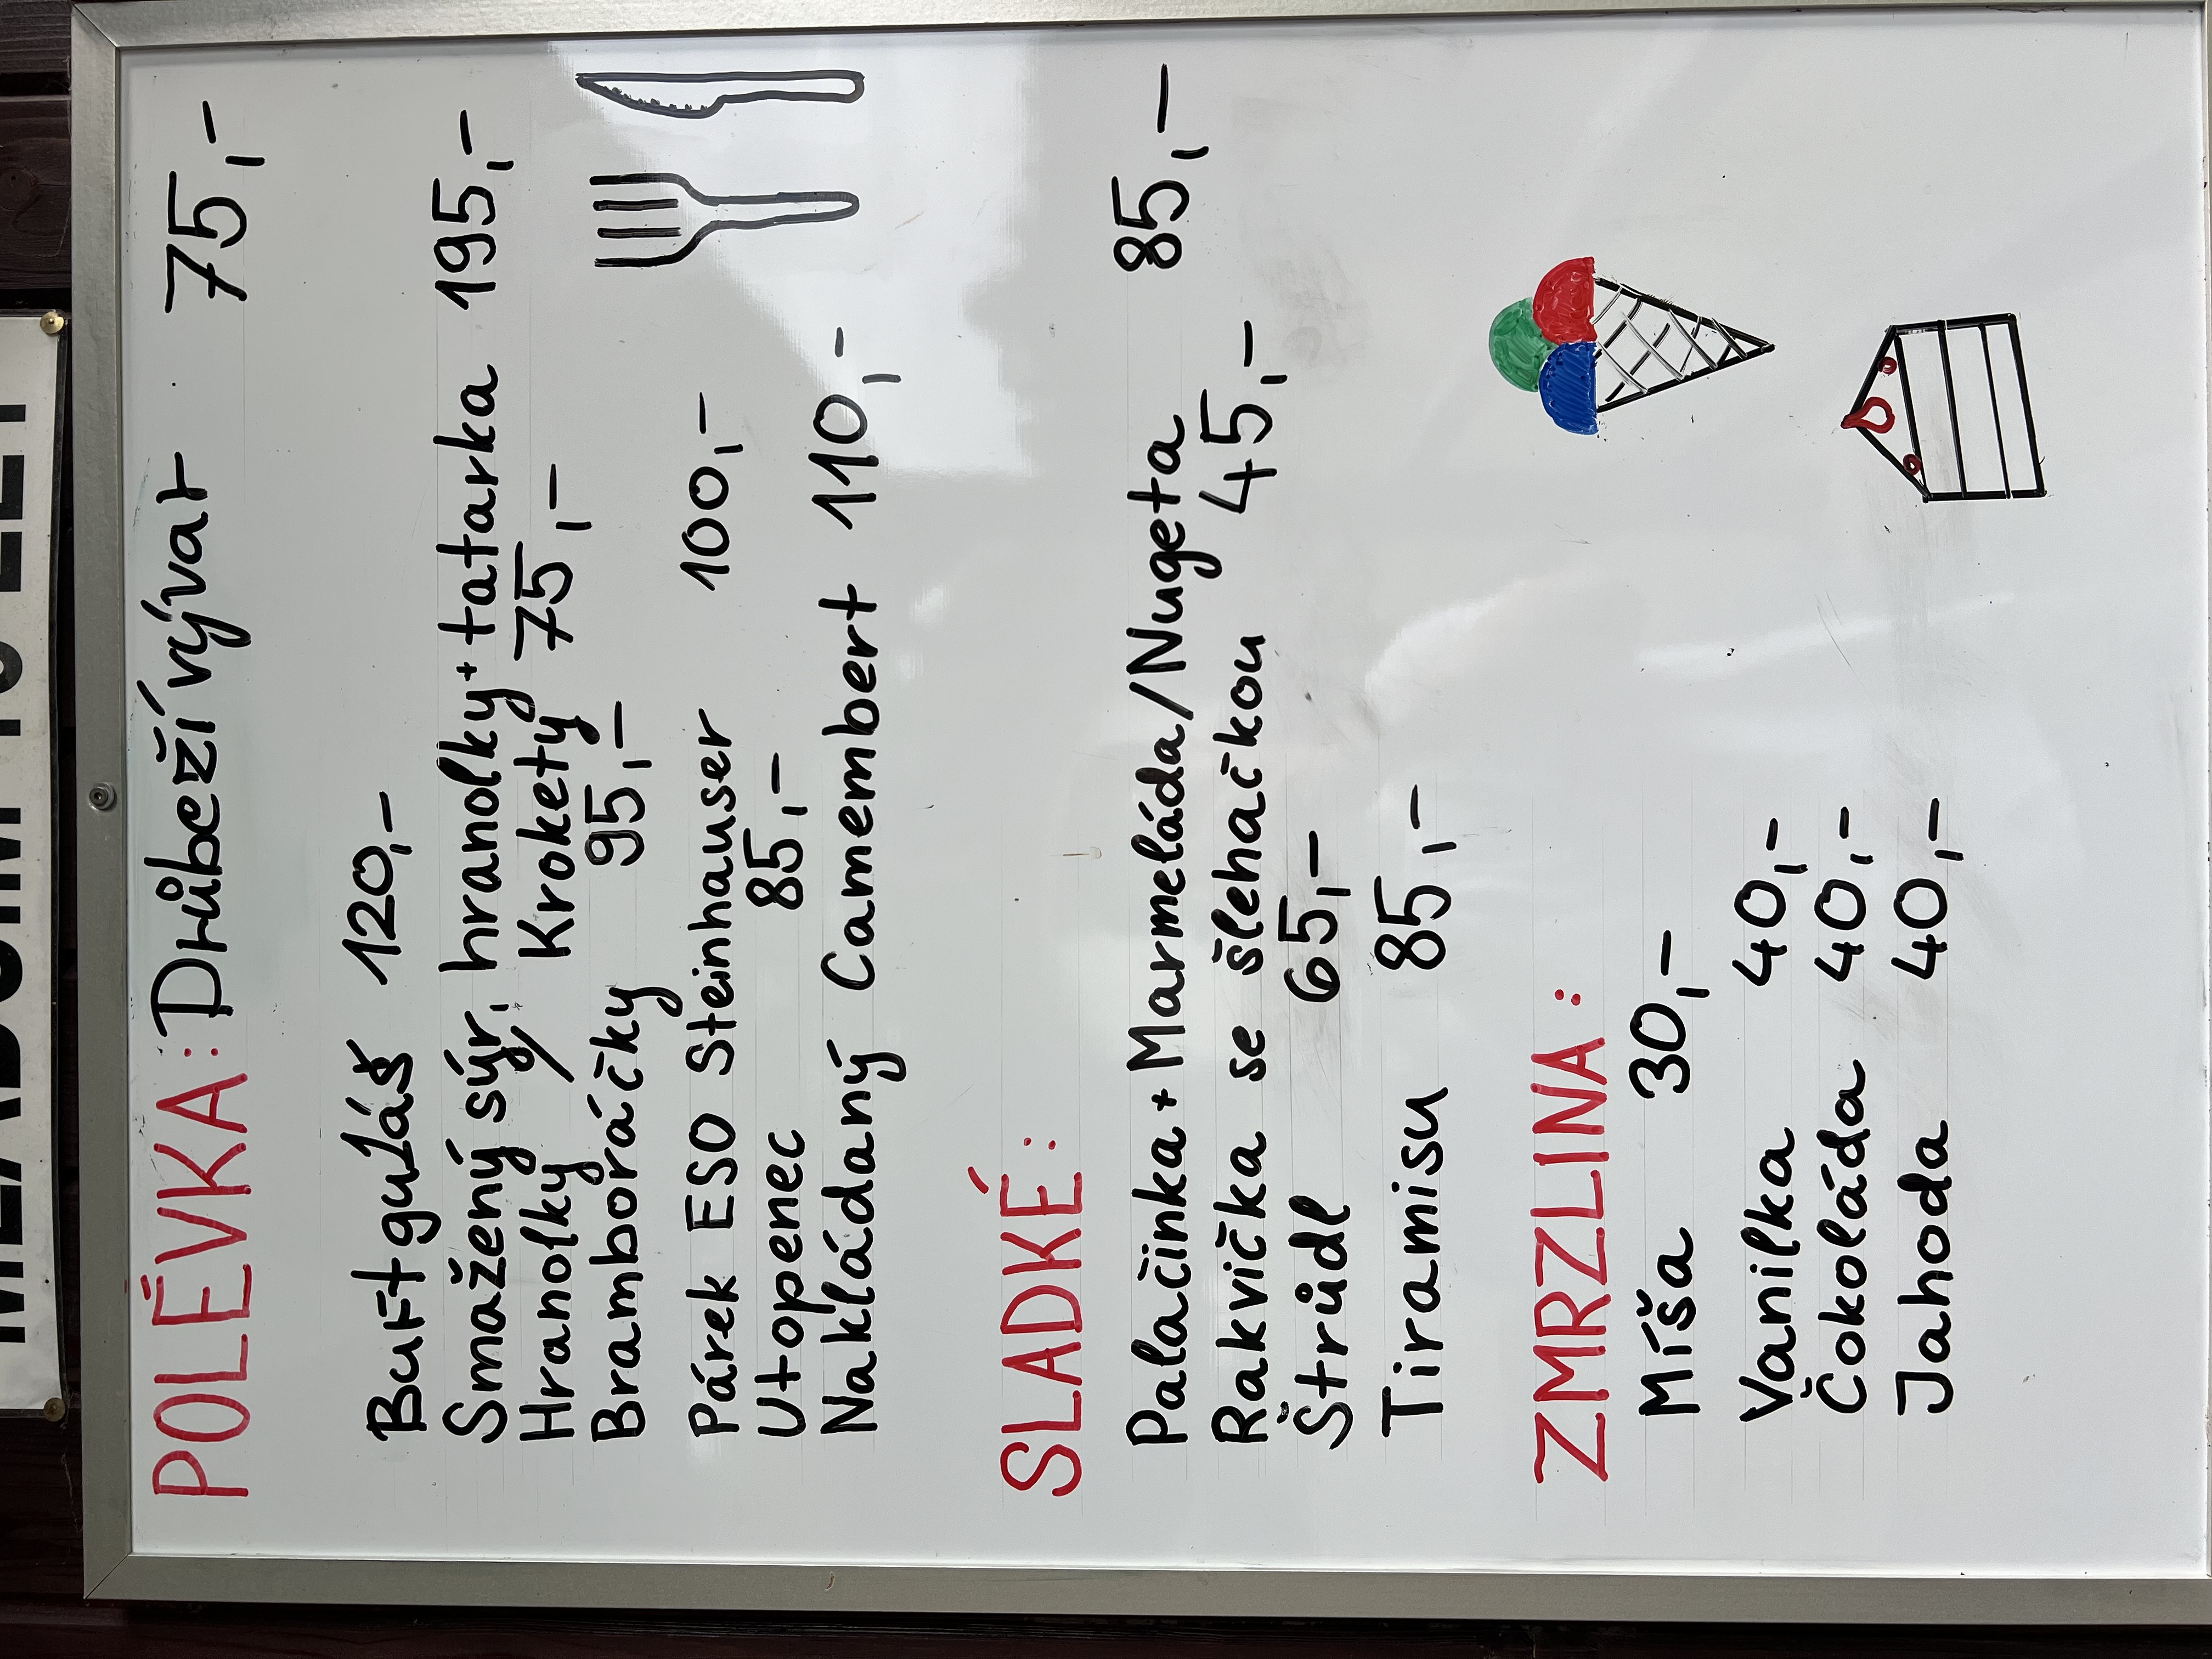 POLÉVKA: Drůbeží vývar 75,-
Buřtguláš 120,-
Smažený sýr, hranolky+tatarka 195,-
Hranolky / Krokety 75,-
Bramboráčky 95,-
Párek ESO Steinhauser 100,-
Utopenec 85,-
Nakládaný Camembert 110,-
SLADKÉ:
Palačinka + Marmeláda/Nugeta 85,-
Rakvička se šlehačkou 45,-
Štrůdl 65,-
Tiramisu 85,-
ZMRZLINA:
Míša 30,-
Vanilka 40,-
Čokoláda 40,-
Jahoda 40,-